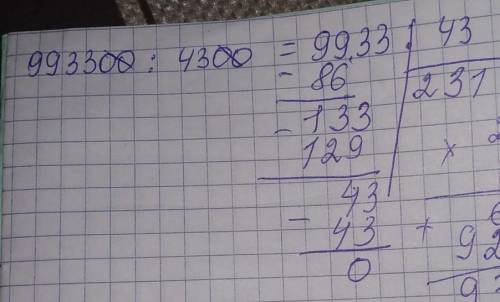 993300 : 4300 = 9933 | 43
- 86
231
- 133
129
×
- 43
43
+
0